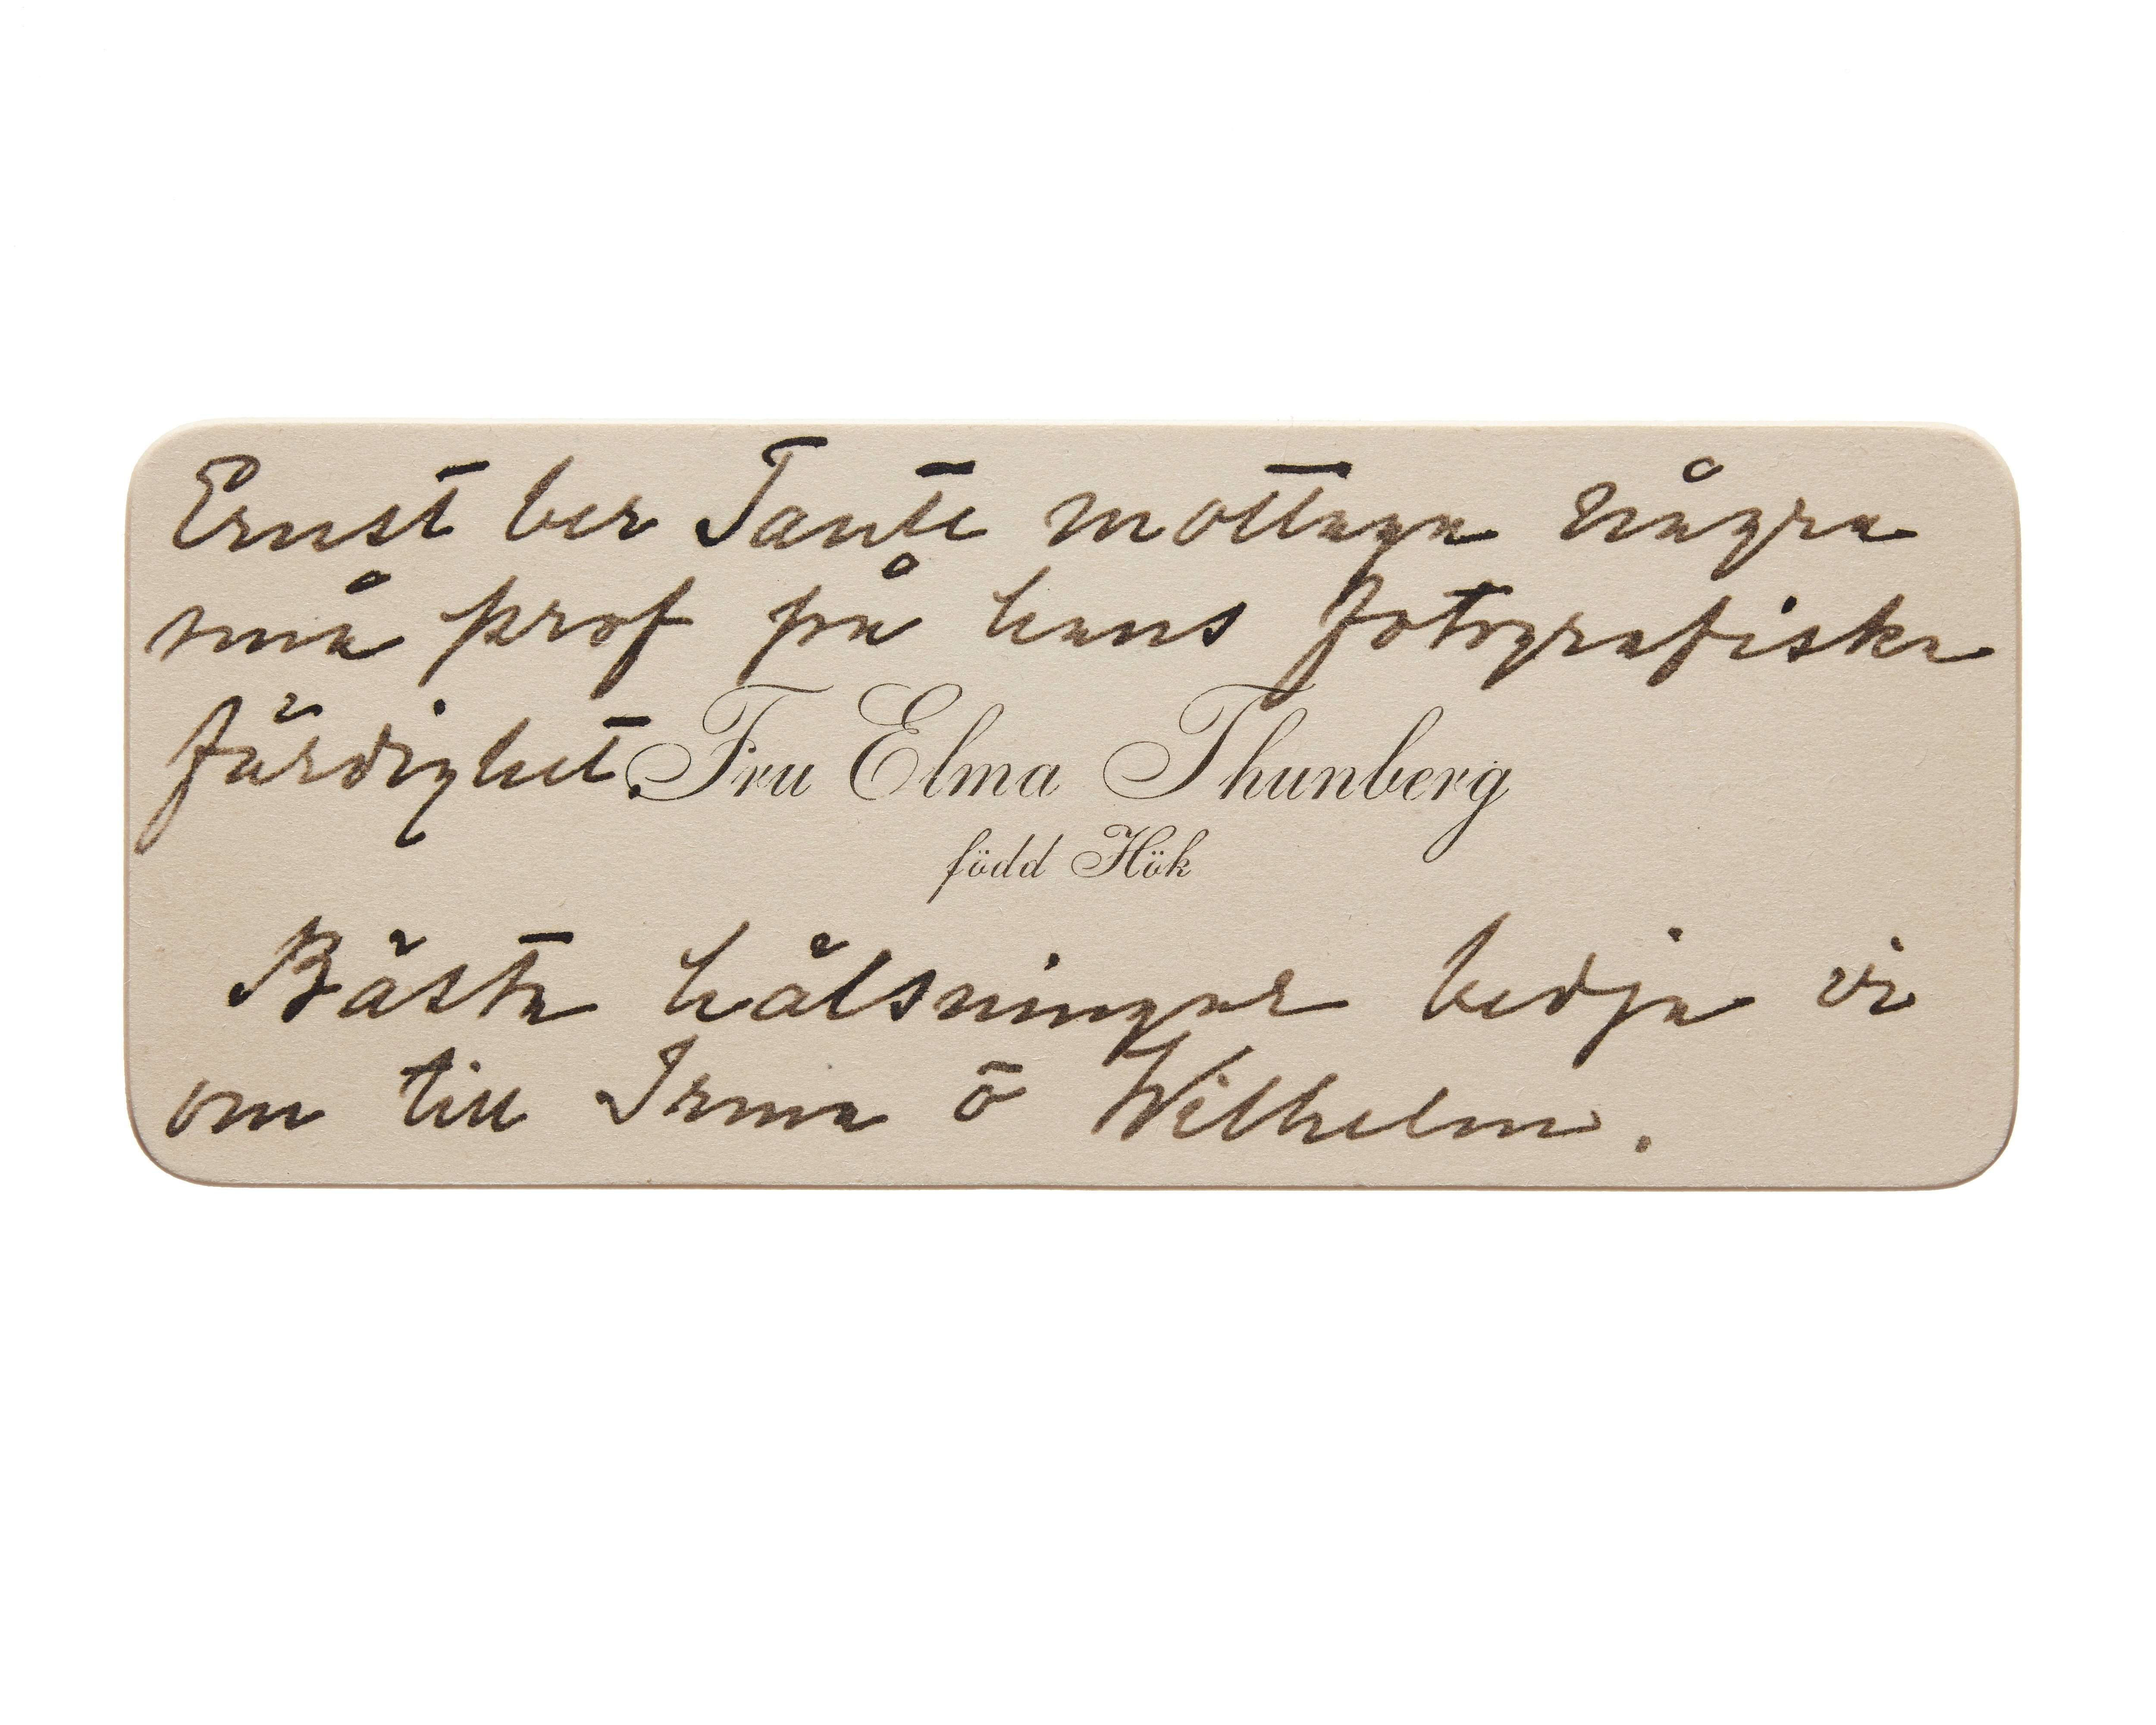 Ernst ber Tante mottaga några
små prof på hans fotografiska
färdighet.
Fru Elma Thunberg
född Hök
Bästa hälsningar bedja vi
om till Irma o Wilhelm.